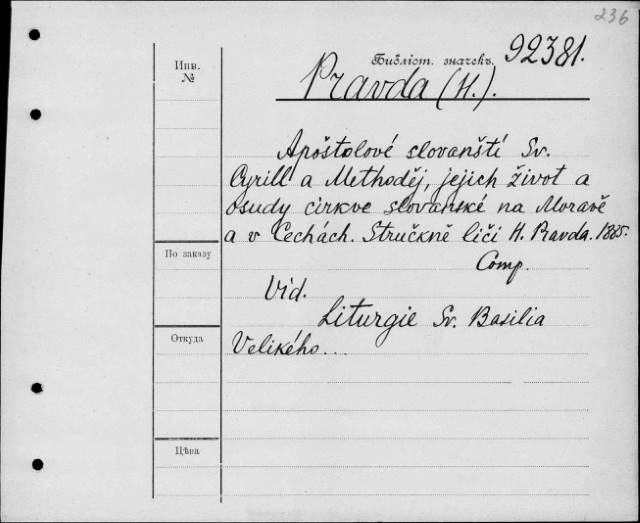 236
Библіот. значекъ. 92381.
Инв.
№
Pravda (H.).
Apoštolové slovanští Sv.
Cyrill a Methoděj, jejich život a
osudy církve slovanské na Moravě
a v Čechách. Stručně líčí H. Pravda. 1885.
По заказу
Comp.
Vid.
Liturgie Sv. Basilia
Откуда
Velikého...
Цѣна